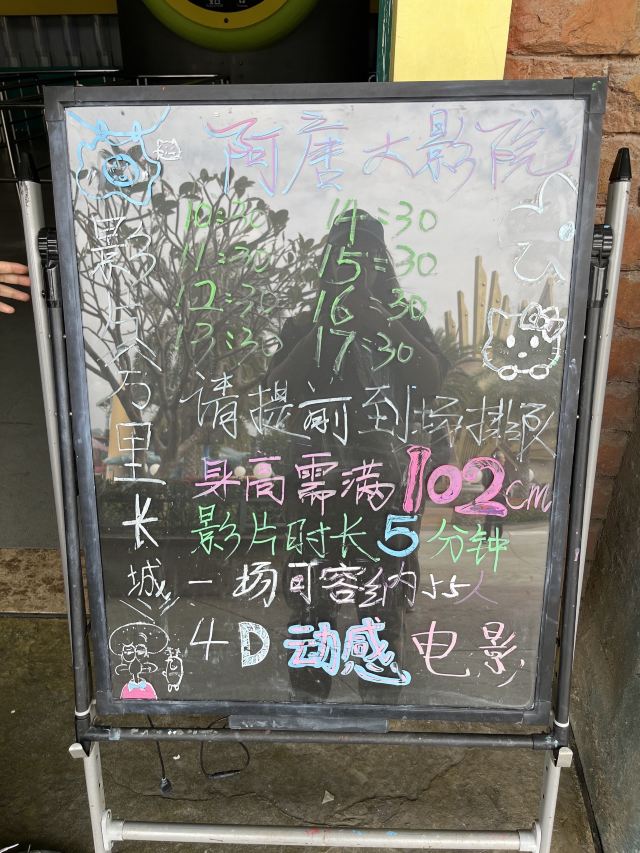 阿唐大影院
10:30 14:30
11:30 15:30
12:30 16:30
13:30 17:30
影片万里长城
请提前到场排队
身高需满102cm
影片时长5分钟
一场可容纳55人
4D动感电影